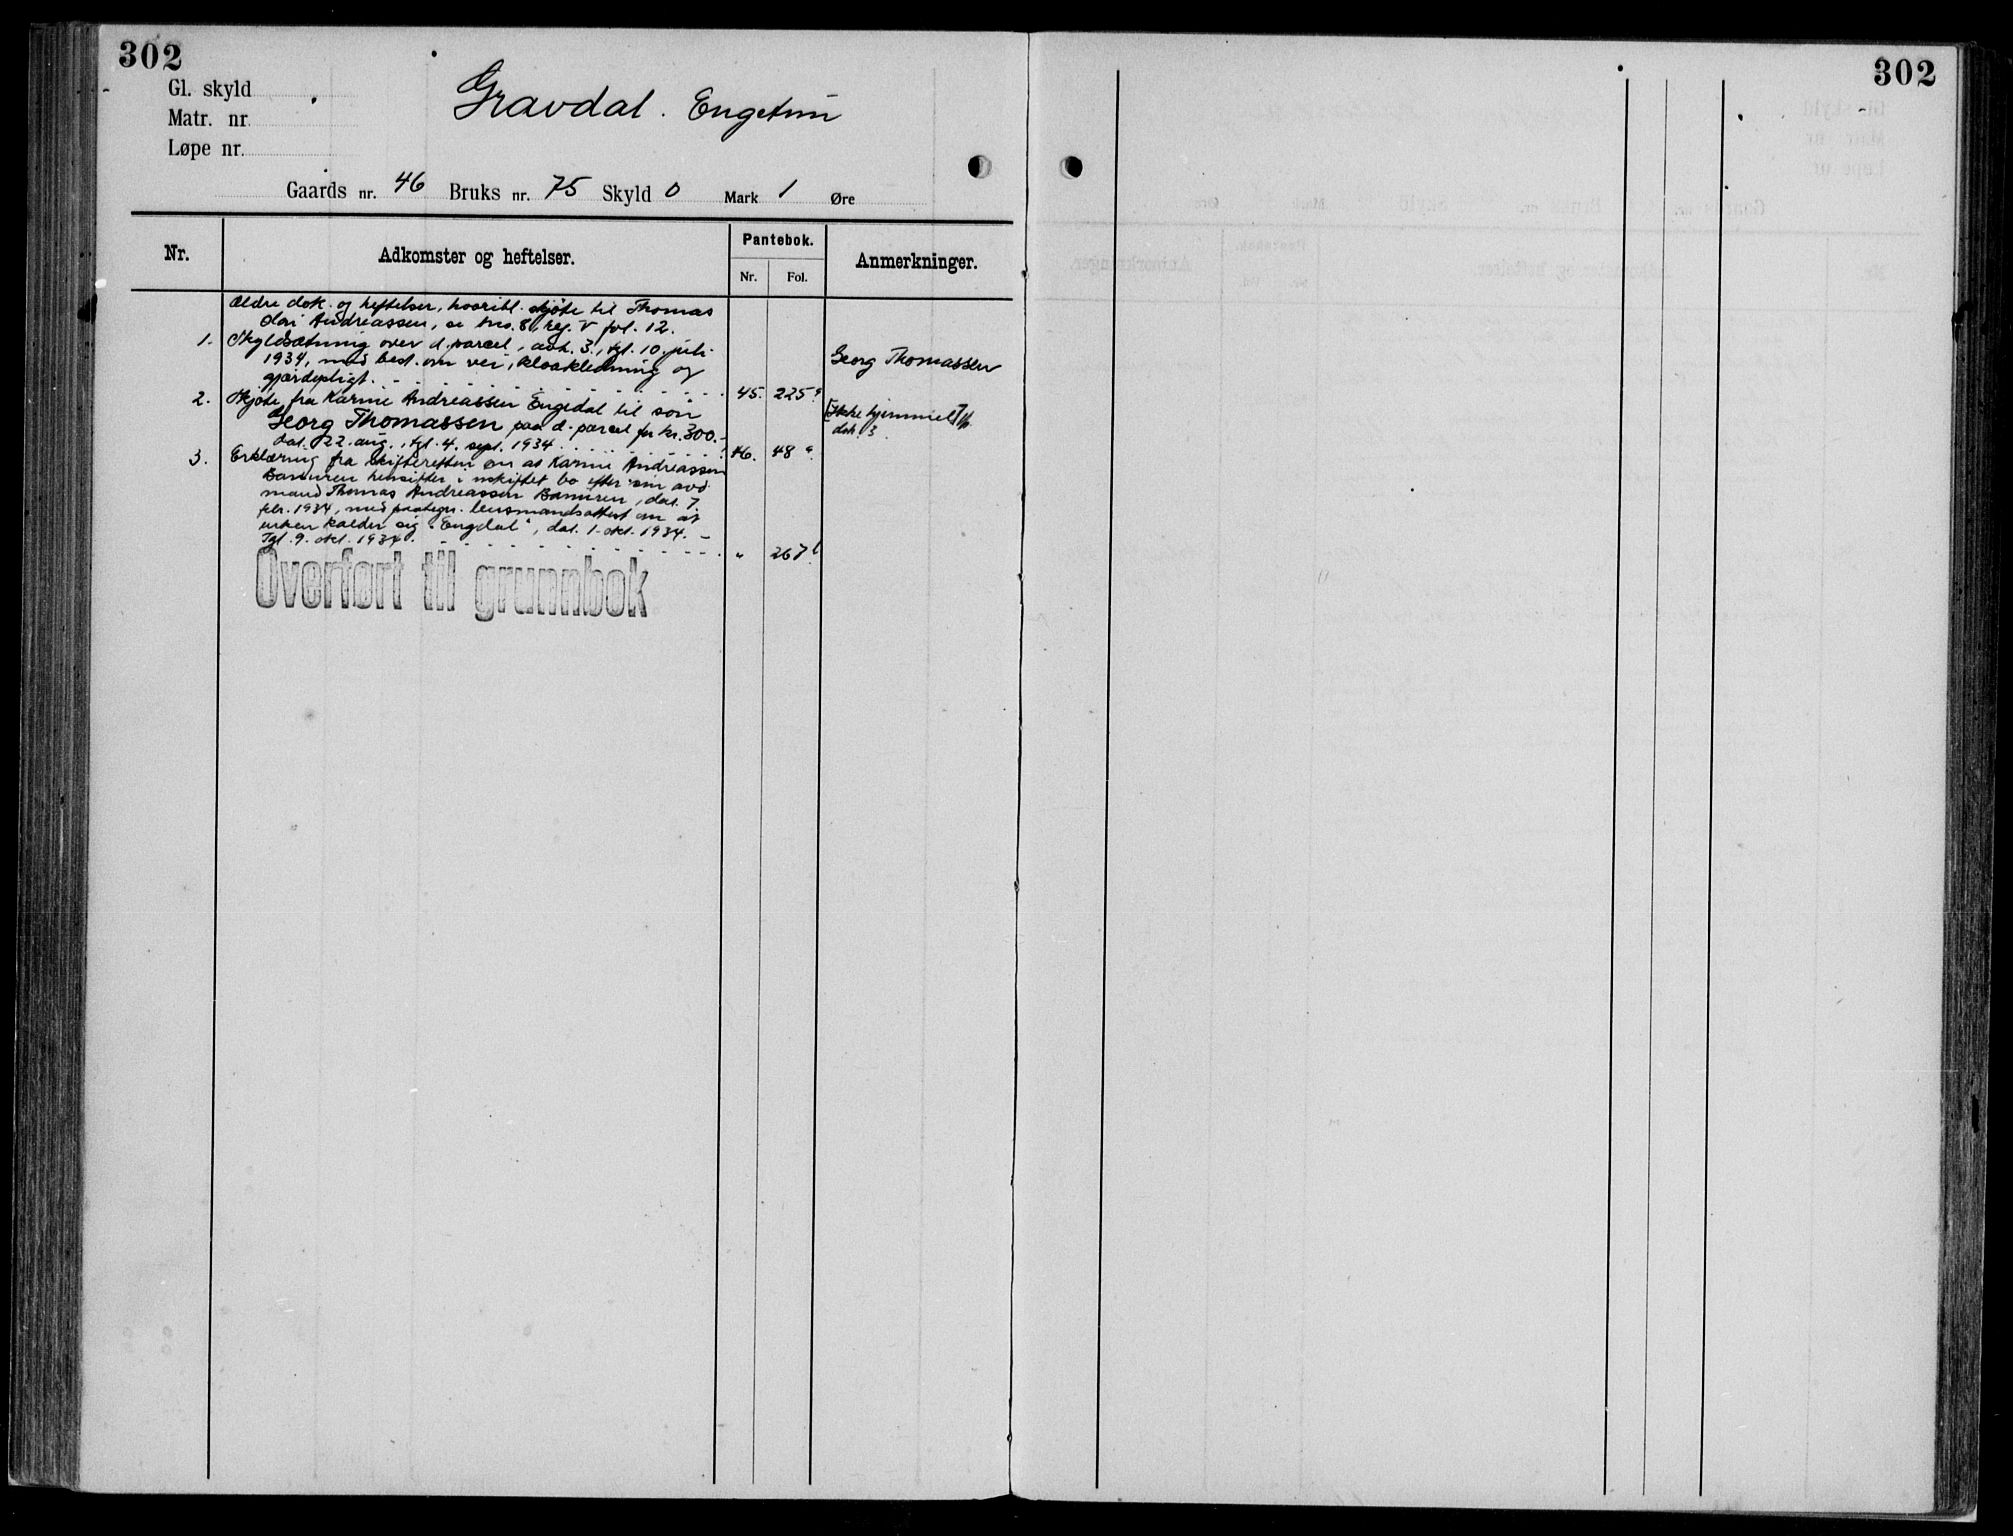 302
302
Gl. skyld
Matr. nr.
Løpe nr.
Gravdal. Engetun
Gaards nr. 46 Bruks nr. 75 Skyld 0 Mark 1 Øre
Nr.
Adkomster og heftelser.
Pantebok.
Nr. Fol.
Anmerkninger.
Ældre dok. og heftelser, hvoribl. skjøte til Thomas
Andreassen, se bno. 8, reg. V fol. 12.
1. Skyldsætning over d. parcel, avh. 3., tgl. 10. juli
1934, med best. om vei, kloakledning og
gjærdepligt. 45. 225
Georg Thomassen
2. Skjøte fra Karine Andreassen Engedal til søn
Georg Thomassen paa d. parcel for kr. 300.-
dat. 22. aug., tgl. 4. sept. 1934 46. 48
[Ikke hjemmel]
dok. 3
3. Erklæring fra skifteretten om at Karine Andreassen
hensitter i uskiftet bo efter sin avd.
mand Thomas Andreassen, dat. 7.
febr. 1934, med paategn. lensmandsattest om at
enken kalder sig "Engdal", dat. 1. okt. 1934. -
Tgl. 9. okt. 1934. " 267
Overført til grunnbok